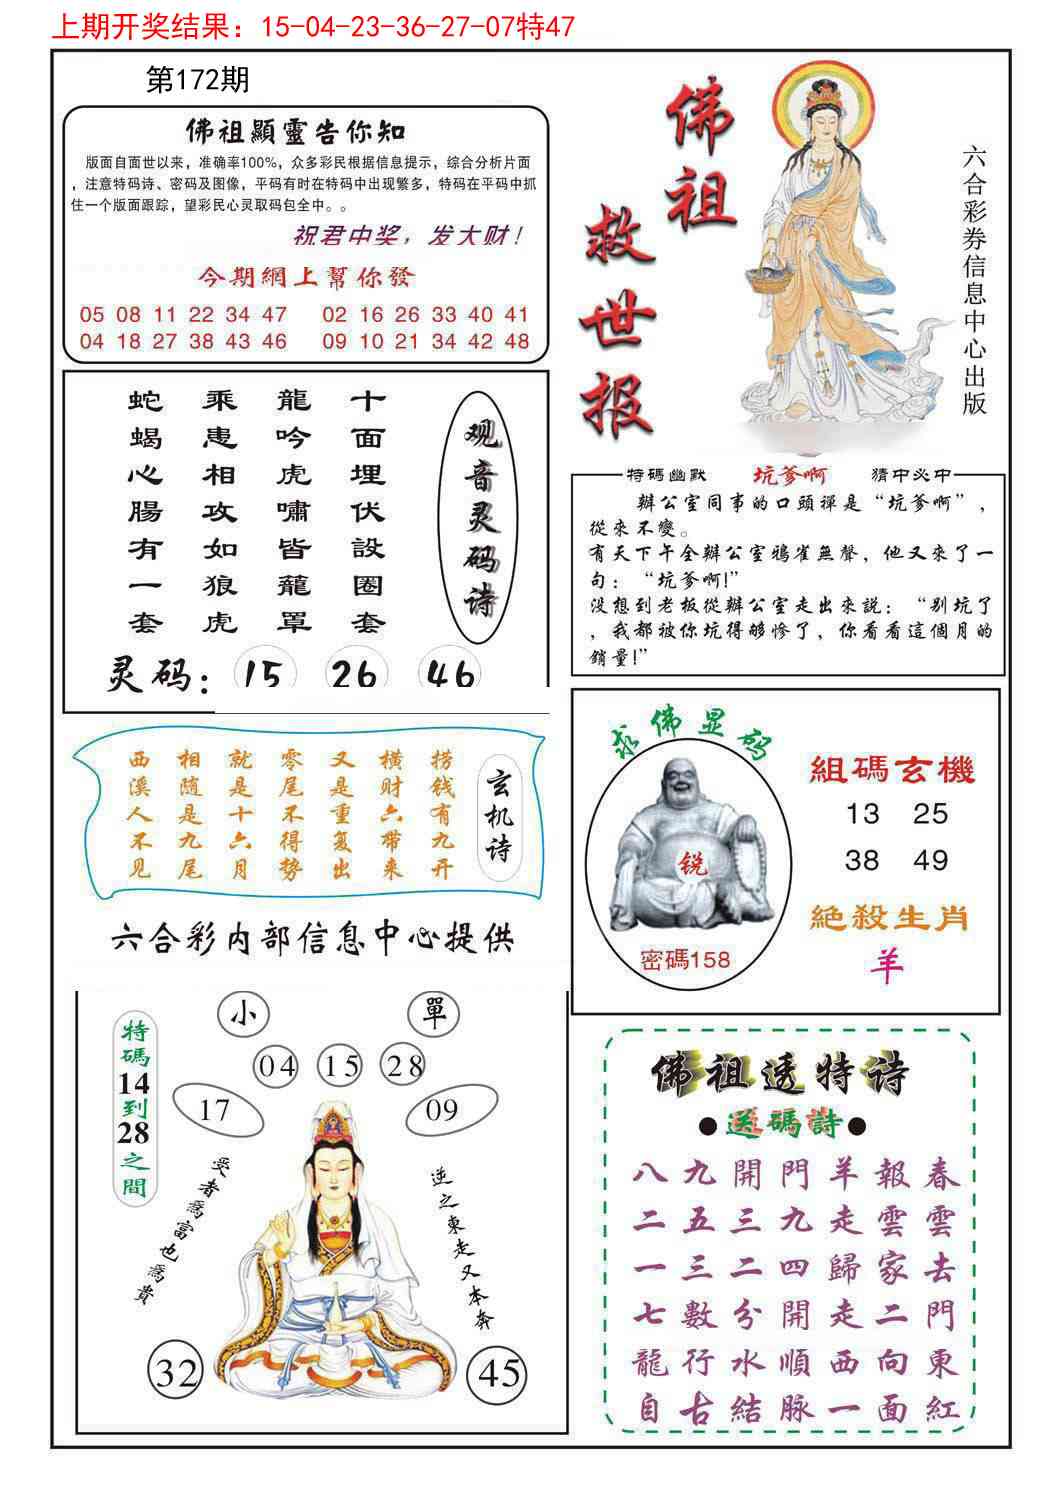 上期开奖结果：15-04-23-36-27-07特47
第172期
佛祖顯靈告你知
版面自面世以来，准确率100%，众多彩民根据信息提示，综合分析片面
，注意特码诗、密码及图像，平码有时在特码中出现繁多，特码在平码中抓
住一个版面跟踪，望彩民心灵取码包全中。。
祝君中奖，发大财！
今期網上幫你發
05 08 11 22 34 47 02 16 26 33 40 41
04 18 27 38 43 46 09 10 21 34 42 48
佛祖
救世报
六合彩券信息中心出版
观音灵码诗
十面埋伏設圈套
龍吟虎嘯皆籠罩
乘患相攻如狼虎
蛇蝎心腸有一套
灵码：15 26 46
特碼幽默 坑爹啊 猜中必中
辦公室同事的口頭禪是“坑爹啊”，
從來不變。
有天下午全辦公室鴉雀無聲，他又來了一
句：“坑爹啊!”
没想到老板從辦公室走出來説：“别坑了
，我都被你坑得够惨了，你看看這個月的
銷量!”
玄机诗
捞钱有九开
横财六带来
又是重复出
零尾不得势
就是十六月
相随是九尾
西溪人不见
六合彩内部信息中心提供
求佛显码
锐
密碼158
組碼玄機
13 25
38 49
絕殺生肖
羊
特碼14到28之間
小 單
04 15 28
17 09
受者爲富也爲貴
逆之東走又本奔
32 45
佛祖透特诗
●送碼詩●
八九開門羊報春
二五三九走雲雲
一三二四歸家去
七數分開走二門
龍行水順西向東
自古結脉一面紅